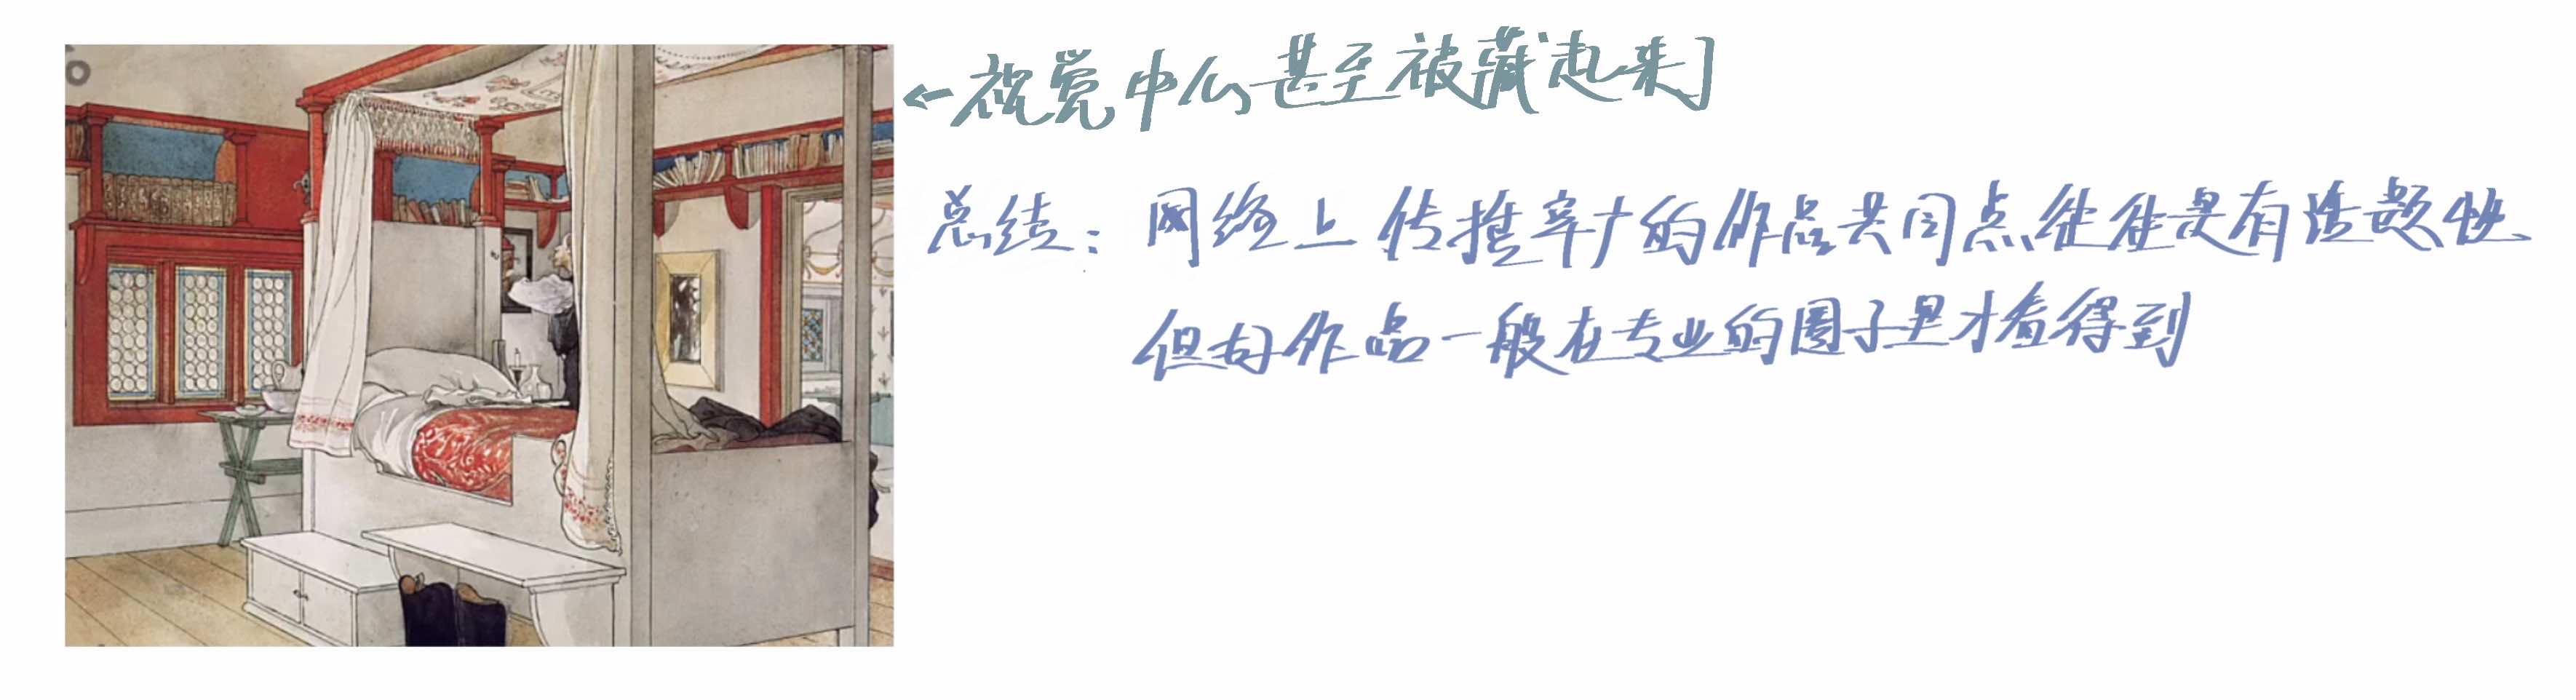 ←视觉中心甚至被藏起来了
总结：网络上传播率广的作品共同点往往是有话题性
但好作品一般在专业的圈子里才看得到